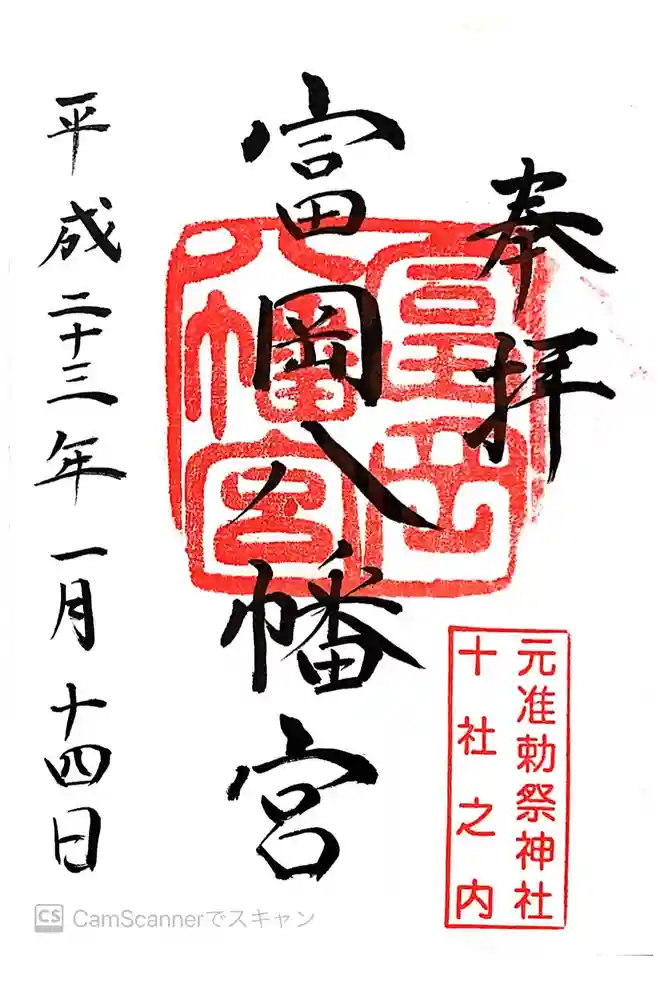 奉拝
富岡八幡宮
富岡
八幡宮
元准勅祭神社
十社之内
平成二十三年一月十四日
CS CamScannerでスキャン